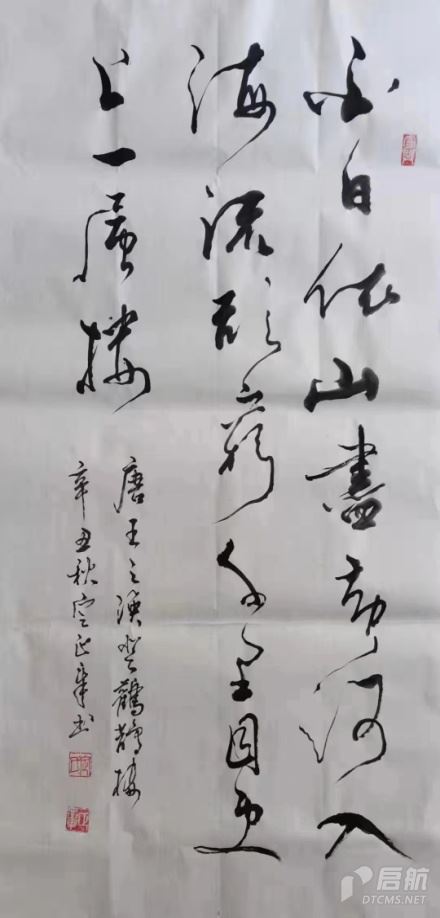 白日依山盡黄河入
海流欲窮千里目更
上一層樓
唐王之渙登鸛鵲樓
辛丑秋书
启航
DTCMS.NET